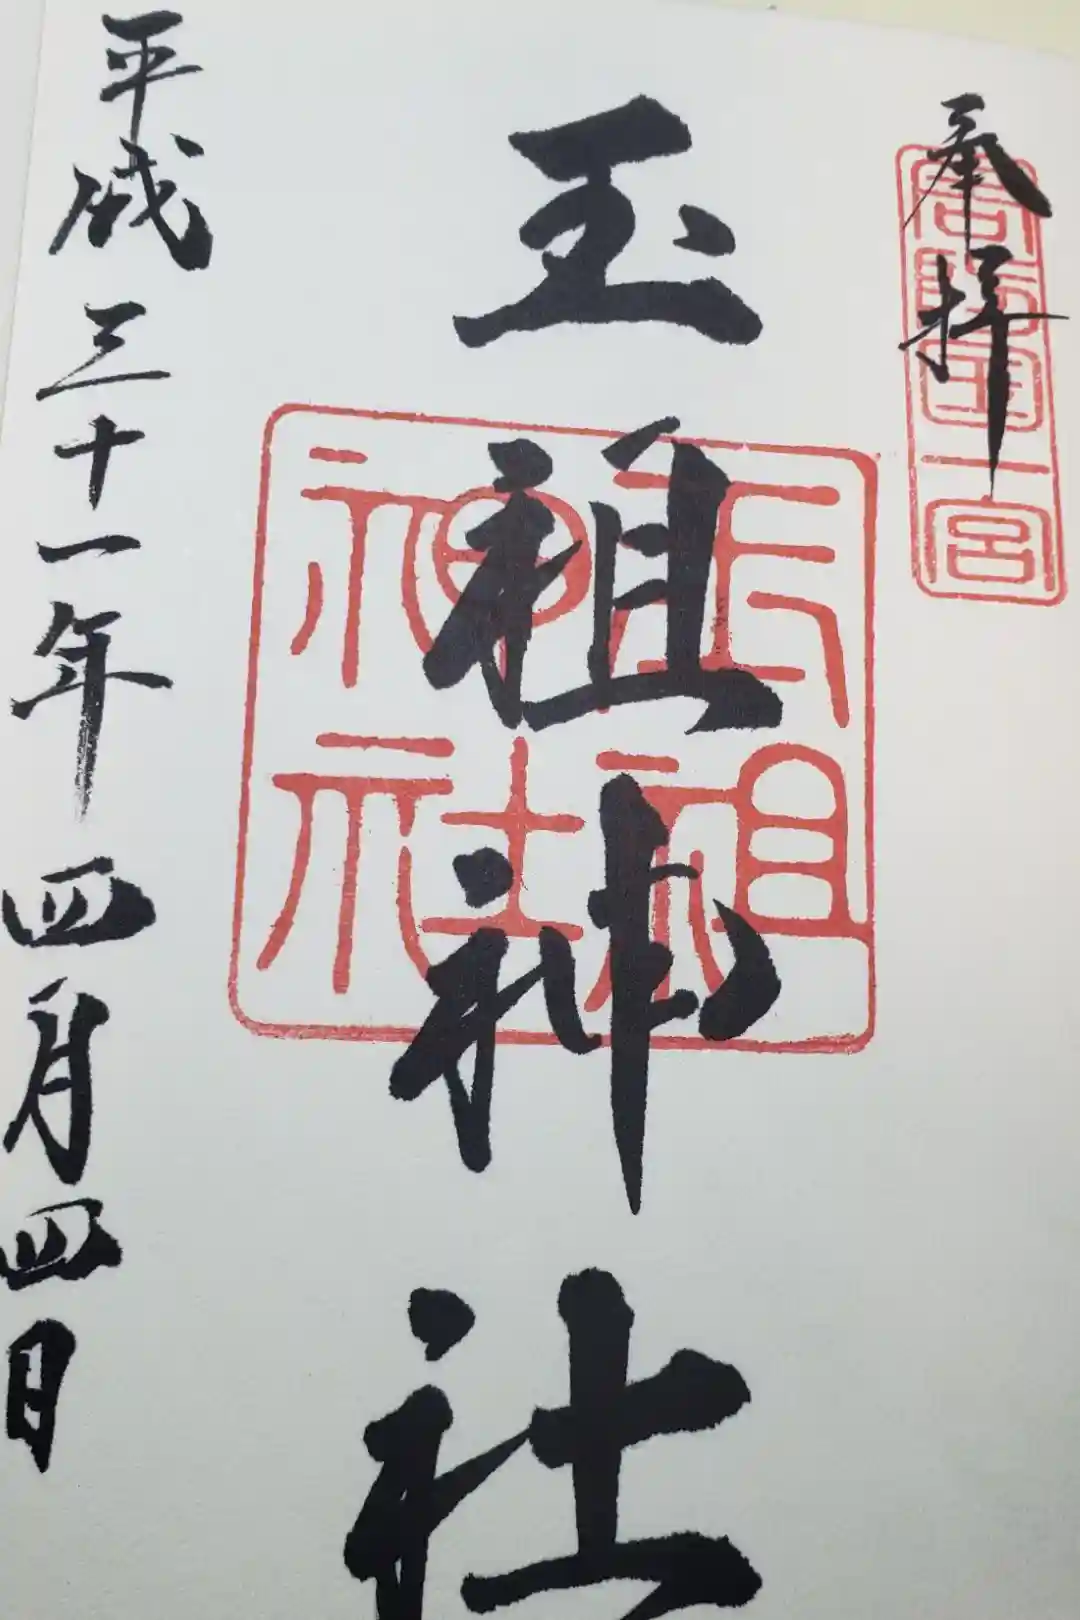 奉拝
周防国一宮
玉祖神社
玉祖神社
平成三十一年四月四日